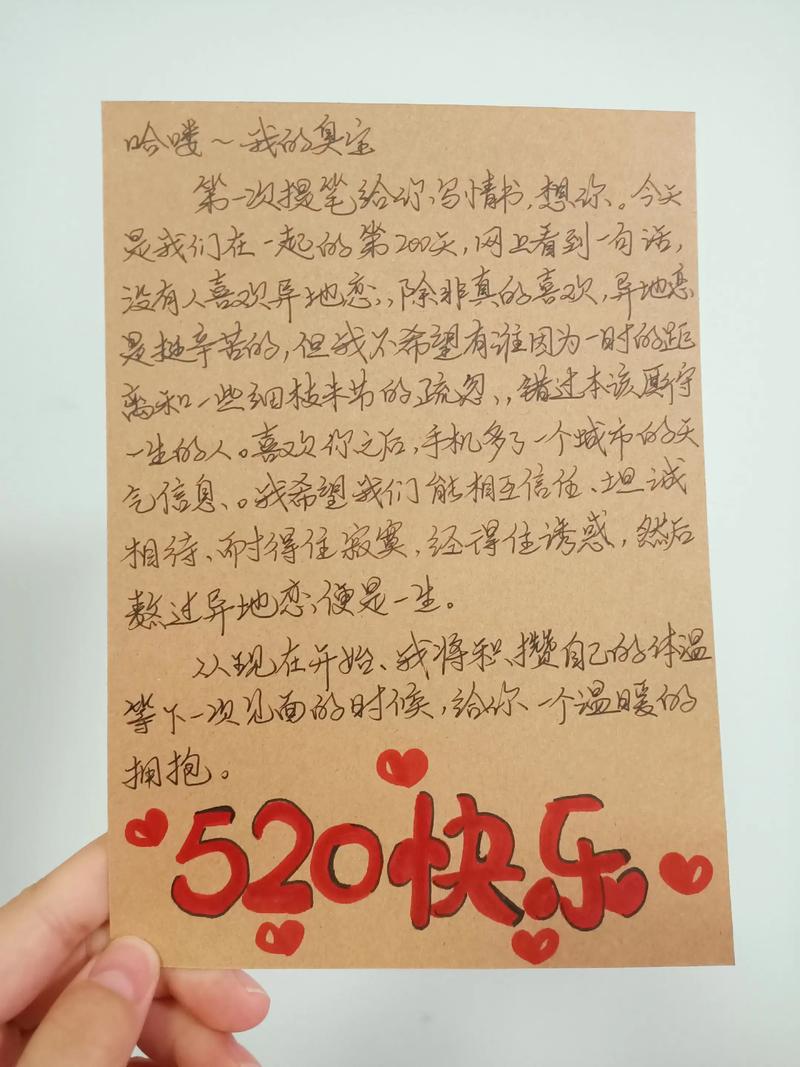 哈喽～我的臭宝
第一次提笔给你写情书,想你。今天
是我们在一起的第200天,网上看到一句话,
没有人喜欢异地恋,,除非真的喜欢,异地恋
是挺辛苦的,但我不希望有谁因为一时的距
离和一些细枝末节的疏忽,,错过本该厮守
一生的人。喜欢你之后,手机多了一个城市的天
气信息、。我希望我们能相互信任、坦诚
相待、耐得住寂寞,经得住诱惑,然后
熬过异地恋,便是一生。
从现在开始、我将积攒自己的体温
等下一次见面的时候,给你一个温暖的
拥抱。
520快乐